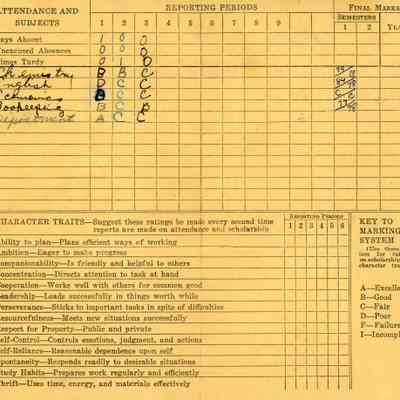 ATTENDANCE AND SUBJECTS REPORTING PERIODS FINAL MARKS
SEMESTERS
1 2 3 4 5 6 7 8 9 10 1 2
ays Absent 1 0 0
nexcused Absences 0 0 0
imes Tardy 0 1 0
Chemistry B B C
English D C C
B C C C C
Bookkeeping B C B
Deportment A C C
CHARACTER TRAITS—Suggest these ratings be made every second time reports are made on attendance and scholarship
Reporting Periods
1 2 3 4 5 6
Ability to plan—Plans efficient ways of working
Ambition—Eager to make progress
Companionability—Is friendly and helpful to others
Concentration—Directs attention to task at hand
Cooperation—Works well with others for common good
Leadership—Leads successfully in things worth while
Perseverance—Sticks to important tasks in spite of difficulties
Resourcefulness—Meets new situations successfully
Respect for Property—Public and private
Self-Control—Controls emotions, judgment, and actions
Self-Reliance—Reasonable dependence upon self
Spontaneity—Responds readily to desirable situations
Study Habits—Prepares work regularly and efficiently
Thrift—Uses time, energy, and materials effectively
KEY TO
MARKING
SYSTEM
A—Excelle
B—Good
C—Fair
D—Poor
F—Failure
I—Incompl